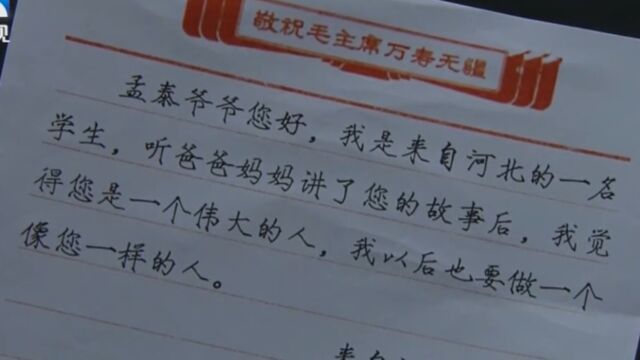 视
敬祝毛主席万寿无疆
孟泰爷爷您好，我是来自河北的一名
学生，听爸爸妈妈讲了您的故事后，我觉
得您是一个伟大的人，我以后也要做一个
像您一样的人。
来自